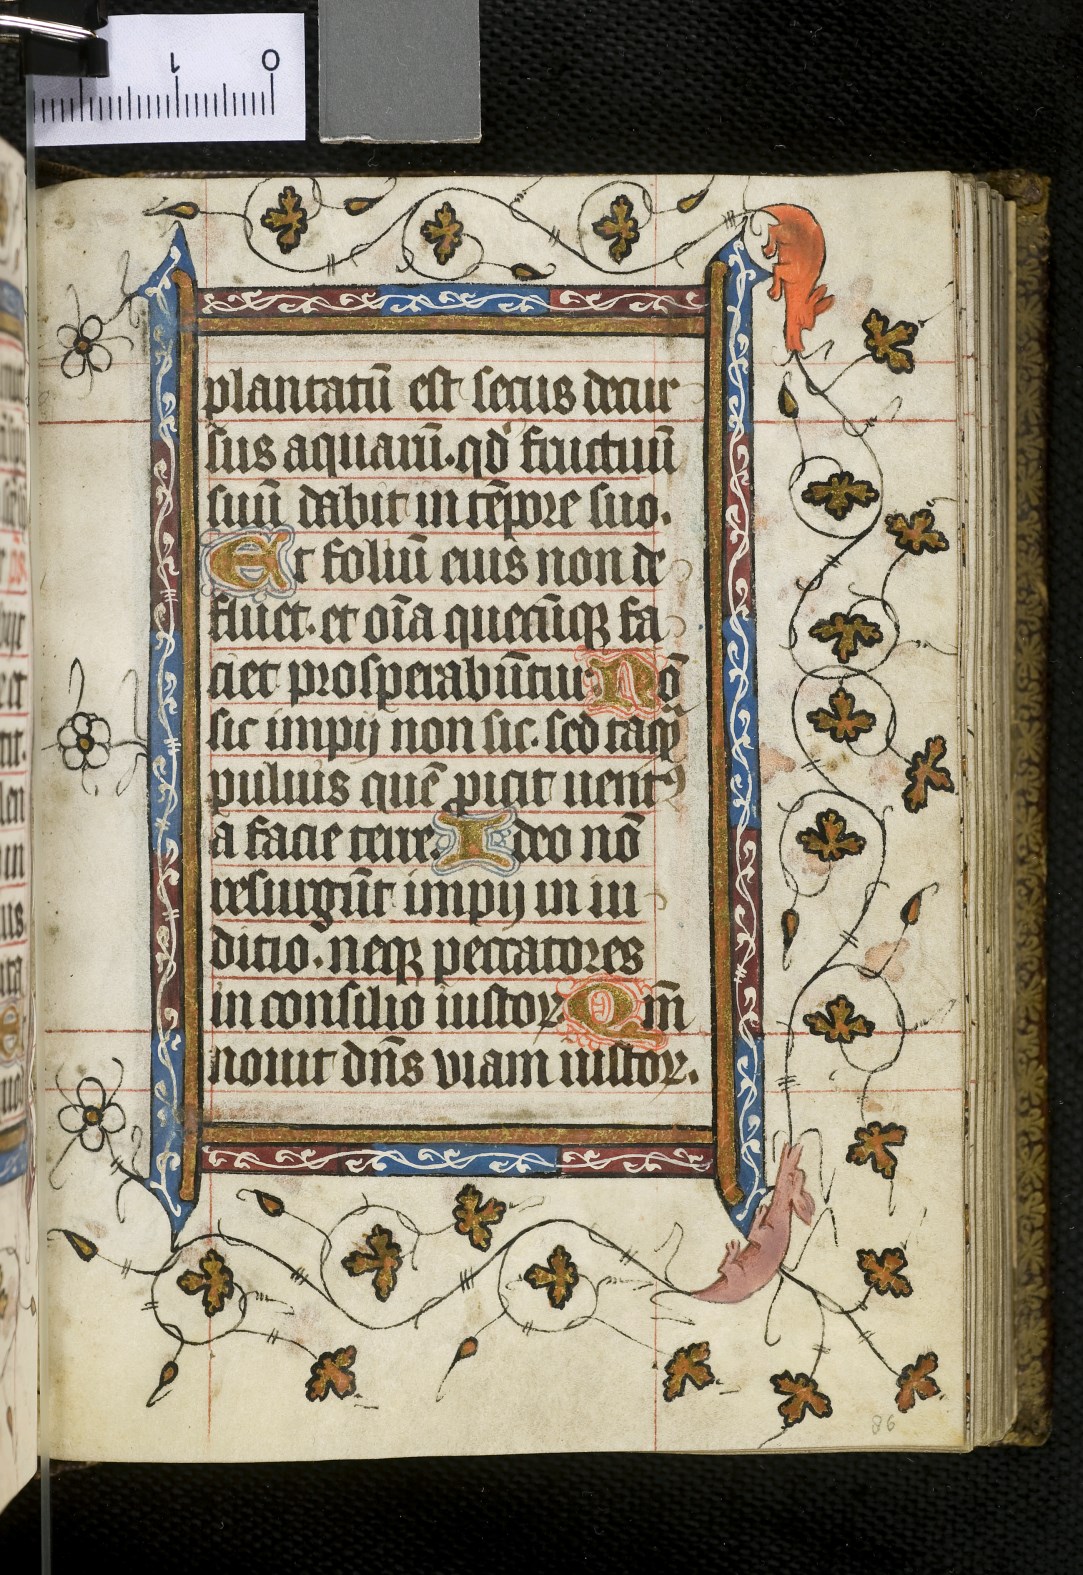 1 0
plantatū est secus decur
sus aquarū. qd' fructuū
suū dabit in tēpore suo.
Et foliū eius non de
fluet. et oīa quecūqꝫ fa
ciet prosperabūtur. Nō
sic impij non sic. sed tamqꝫ
puluis quē ꝓicit uentꝰ
a facie terre. Ideo nō
resurgūt impij in iu
ditio. neqꝫ peccatores
in consilio iustoꝝ Qm̄
nouit dn̄s viam iustoꝝ.
86